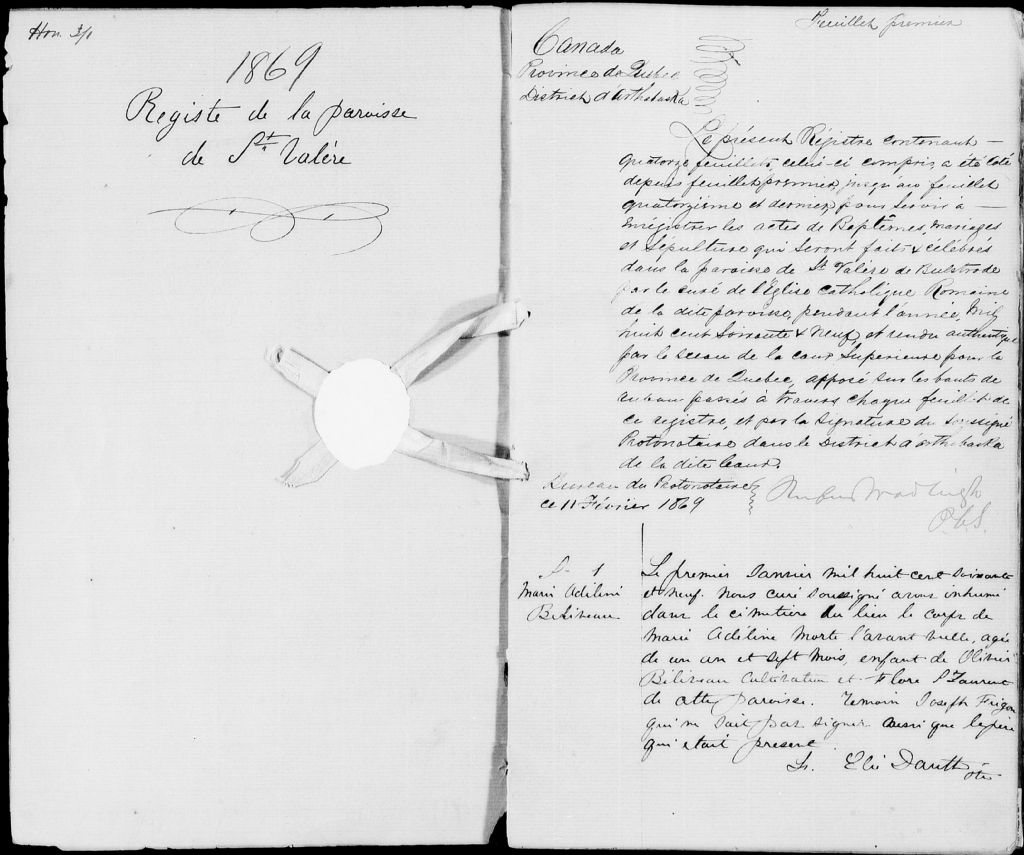 Hon. 3/1
1869
Registe de la paroisse
de St. Valère
Feuillet premier
Canada
Province de Québec
District d'Arthabaska
Le présent Régistre contenant —
quatorze feuillets, celui-ci compris, a été coté
depuis feuillet premier, jusqu'au feuillet
quatorzième et dernier, pour servir à —
enrégistrer les actes de Baptêmes, mariages
et Sépulture qui seront faits & célébrés
dans la paroisse de St. Valère de Bulstrode
par le curé de l'Eglise Catholique Romaine
de la dite paroisse, pendant l'année Mil
huit cent soixante & neuf, et rendu authentique
par le sceau de la cour Supérieure pour la
Province de Québec, apposé sur les bouts de
ruban passés à travers chaque feuillet de
ce registre, et par la signature du soussigné
Protonotaire dans le District d'Arthabaska
de la dite Cour.
Bureau du Protonotaire
ce 11 Février 1869
P.C.S.
S. 1
Marie Adéline
Béliveau
Le premier Janvier mil huit cent soixante
et neuf. nous curé soussigné avons inhumé
dans le cimetière du lieu le corps de
Marie Adéline morte l'avant veille, agée
de un an et sept mois, enfant de Olivier
Béliveau Cultivateur et Flore St Laurent
de cette paroisse. Témoin Joseph Frigon
qui ne sait pas signer aussi que le père
qui etait present.
Elie Dauth